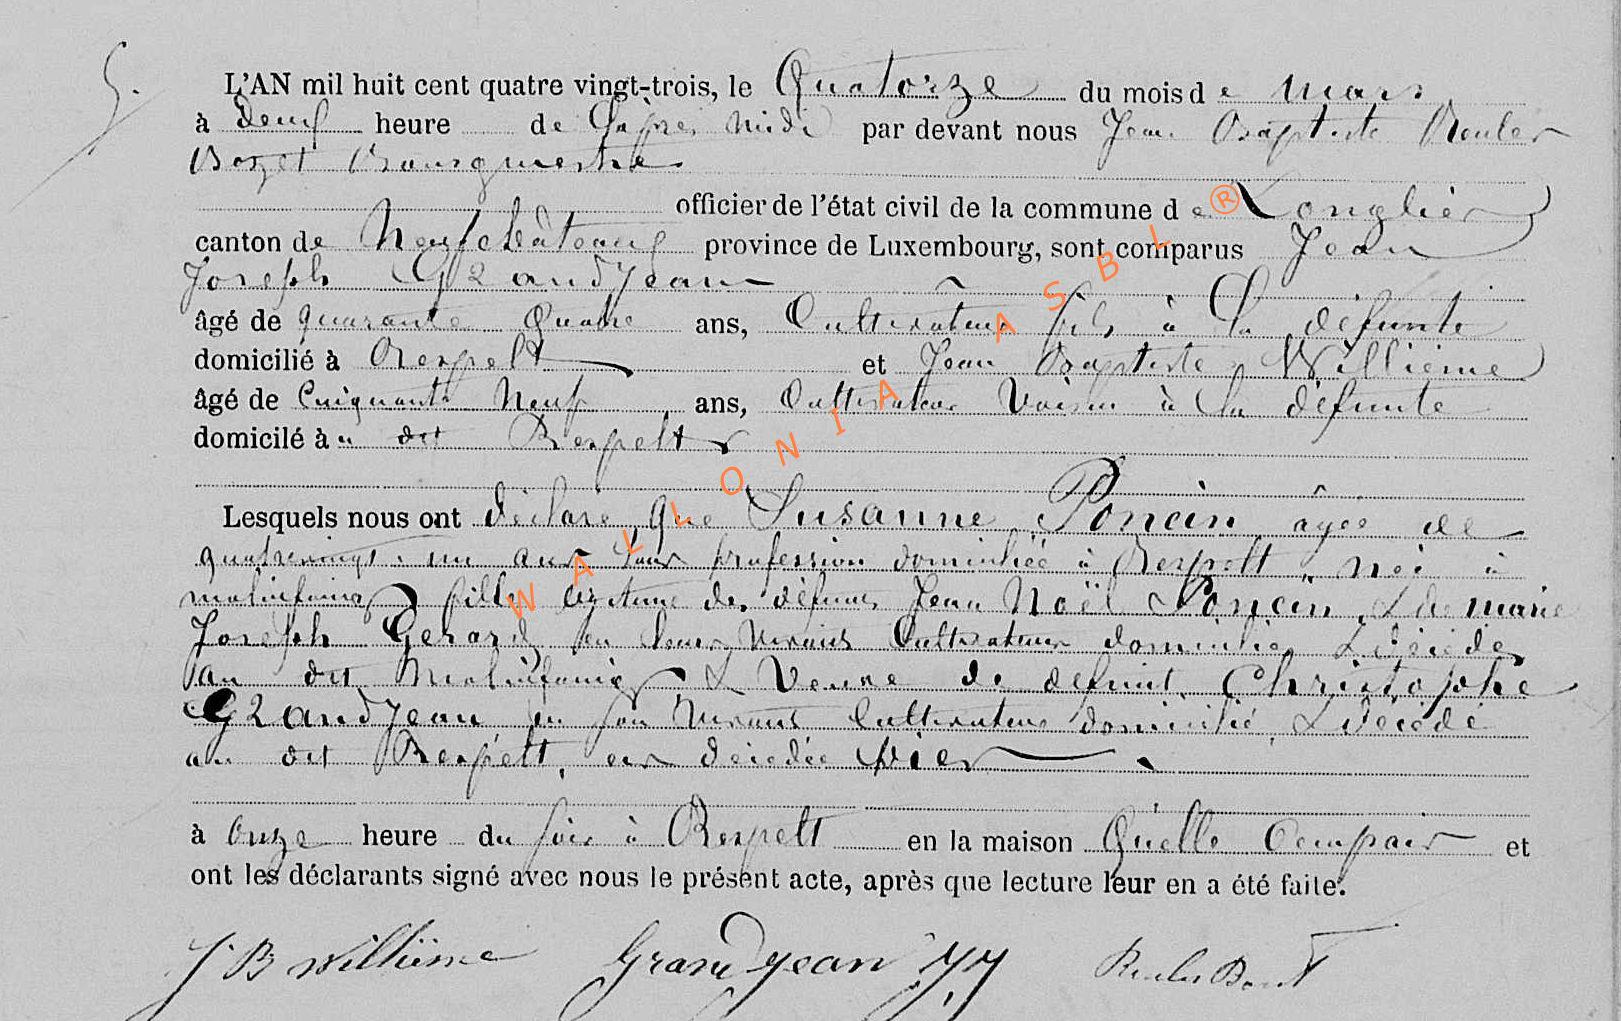 5.
L'AN mil huit cent quatre vingt-trois, le Quatorze du mois de mars
à deux heure de l'après midi par devant nous Jean Baptiste Reuler
Bozet Bourgmestre
officier de l'état civil de la commune de Longlier
canton de Neufchâteau province de Luxembourg, sont comparus Jean
Joseph Grandjean
âgé de quarante Quatre ans, Cultivateur fils à La défunte
domicilié à Respelt et Jean Baptiste Willième
âgé de Cinquante Neuf ans, Cultivateur Voisin à la défunte
domicilé à u dit Respelt
Lesquels nous ont déclaré que Susanne Poncin âgée de
quatrevingt un ans sans profession domiciliée à Respelt née à
fille légitime de défunts Jean Noël Poncin & de marie
Joseph Gerard en leurs vivants Cultivateurs domiciliés & décédés
au dit & Veuve de défunt Christophe
Grandjean en son vivant Cultivateur domicilié & décédé
au dit Respelt, est décédée hier
à onze heure du soir à Respelt en la maison Qu'elle Occupait et
ont les déclarants signé avec nous le présent acte, après que lecture leur en a été faite.
J B Willième Grandjean JJ
WALLONIA ASBL ®